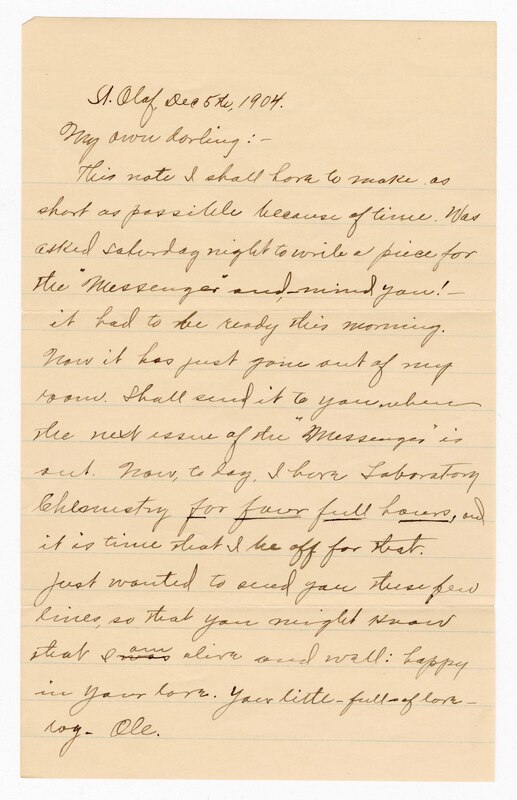 St. Olaf, Dec 5th, 1904.
My own darling:-
This note I shall have to make as
short as possible because of time. Was
asked Saturday night to write a piece for
the "Messenger" and, mind you! -
it had to be ready this morning.
Now it has just gone out of my
room. Shall send it to you when
the next issue of the "Messenger" is
out. Now, to day, I have Laboratory
Chemistry for four full hours, and
it is time that I be off for that.
Just wanted to send you these few
lines, so that you might know
that I was am alive and well: happy
in your love. Your little-full-of love-
roy- Ole.